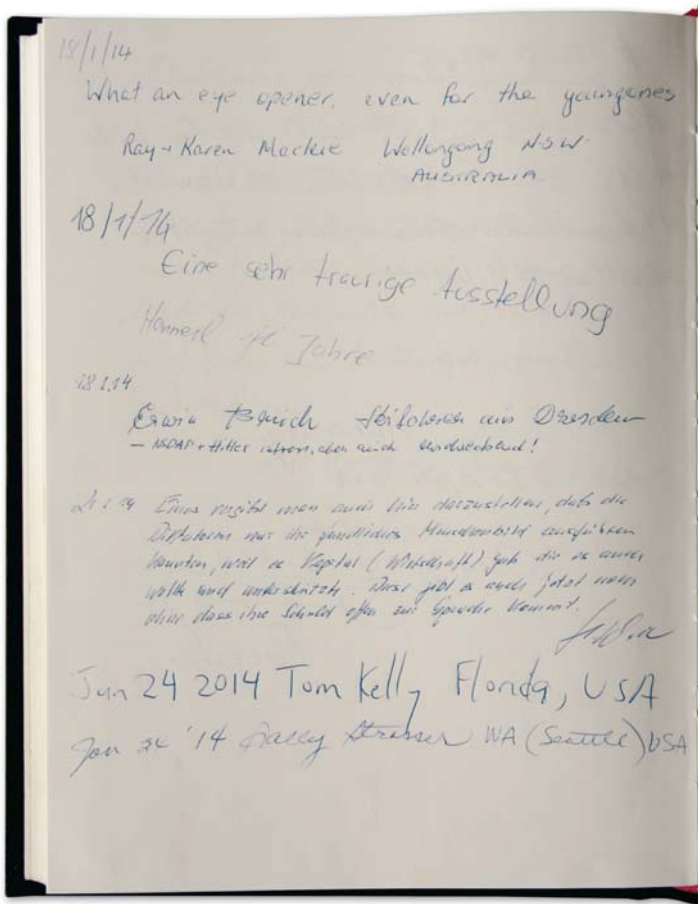 18/1/14
What an eye opener, even for the youngones
Ray + Karen Mackie Wollongong NSW
AUSTRALIA
18/1/14
Eine sehr traurige Ausstellung
Jahre
18.1.14
Erwin aus Dresden
– NSDAP + Hitler auch !
Eines vergißt man auch hier darzustellen, daß die
Diktatoren nur ihr feindliches ausführen
konnten, weil es Kapital (Wirtschaft) gab die es auch
wollte und unterstützte. Diese gibt es auch jetzt noch
ohne dass ihre Schuld offen zur Sprache kommt.
Jan 24 2014 Tom Kelly Florida, USA
Jan 24 '14 Strasser WA (Seattle) USA